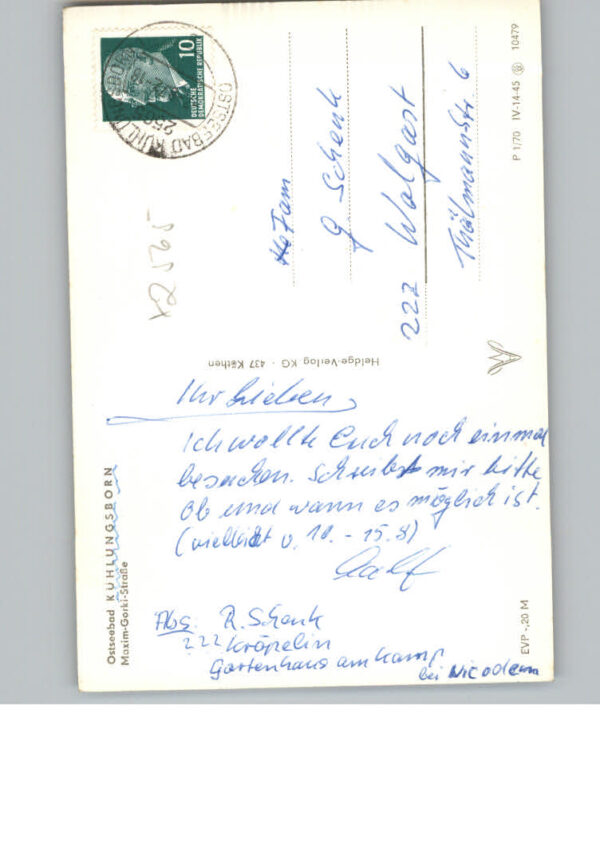 Ostseebad KÜHLUNGSBORN
Maxim-Gorki-Straße
Ihr Lieben
Ich wollte Euch noch einmal
besuchen. Schreibt mir bitte
ob und wann es möglich ist.
(vielleicht v. 10. - 15.8)
Ralf
Abs: R. Schenk
222 Kröpelin
Gartenhaus am Kamp
bei Nicodem
EVP -,20 M
Heldge-Verlag KG · 437 Köthen
10
DEUTSCHE
DEMOKRATISCHE REPUBLIK
OSTSEEBAD KÜHLUNGSBORN
x2565
Fam
G Schenk
222 Wolgast
Thälmannstr. 6
P 1/70 IV-14-45 10479